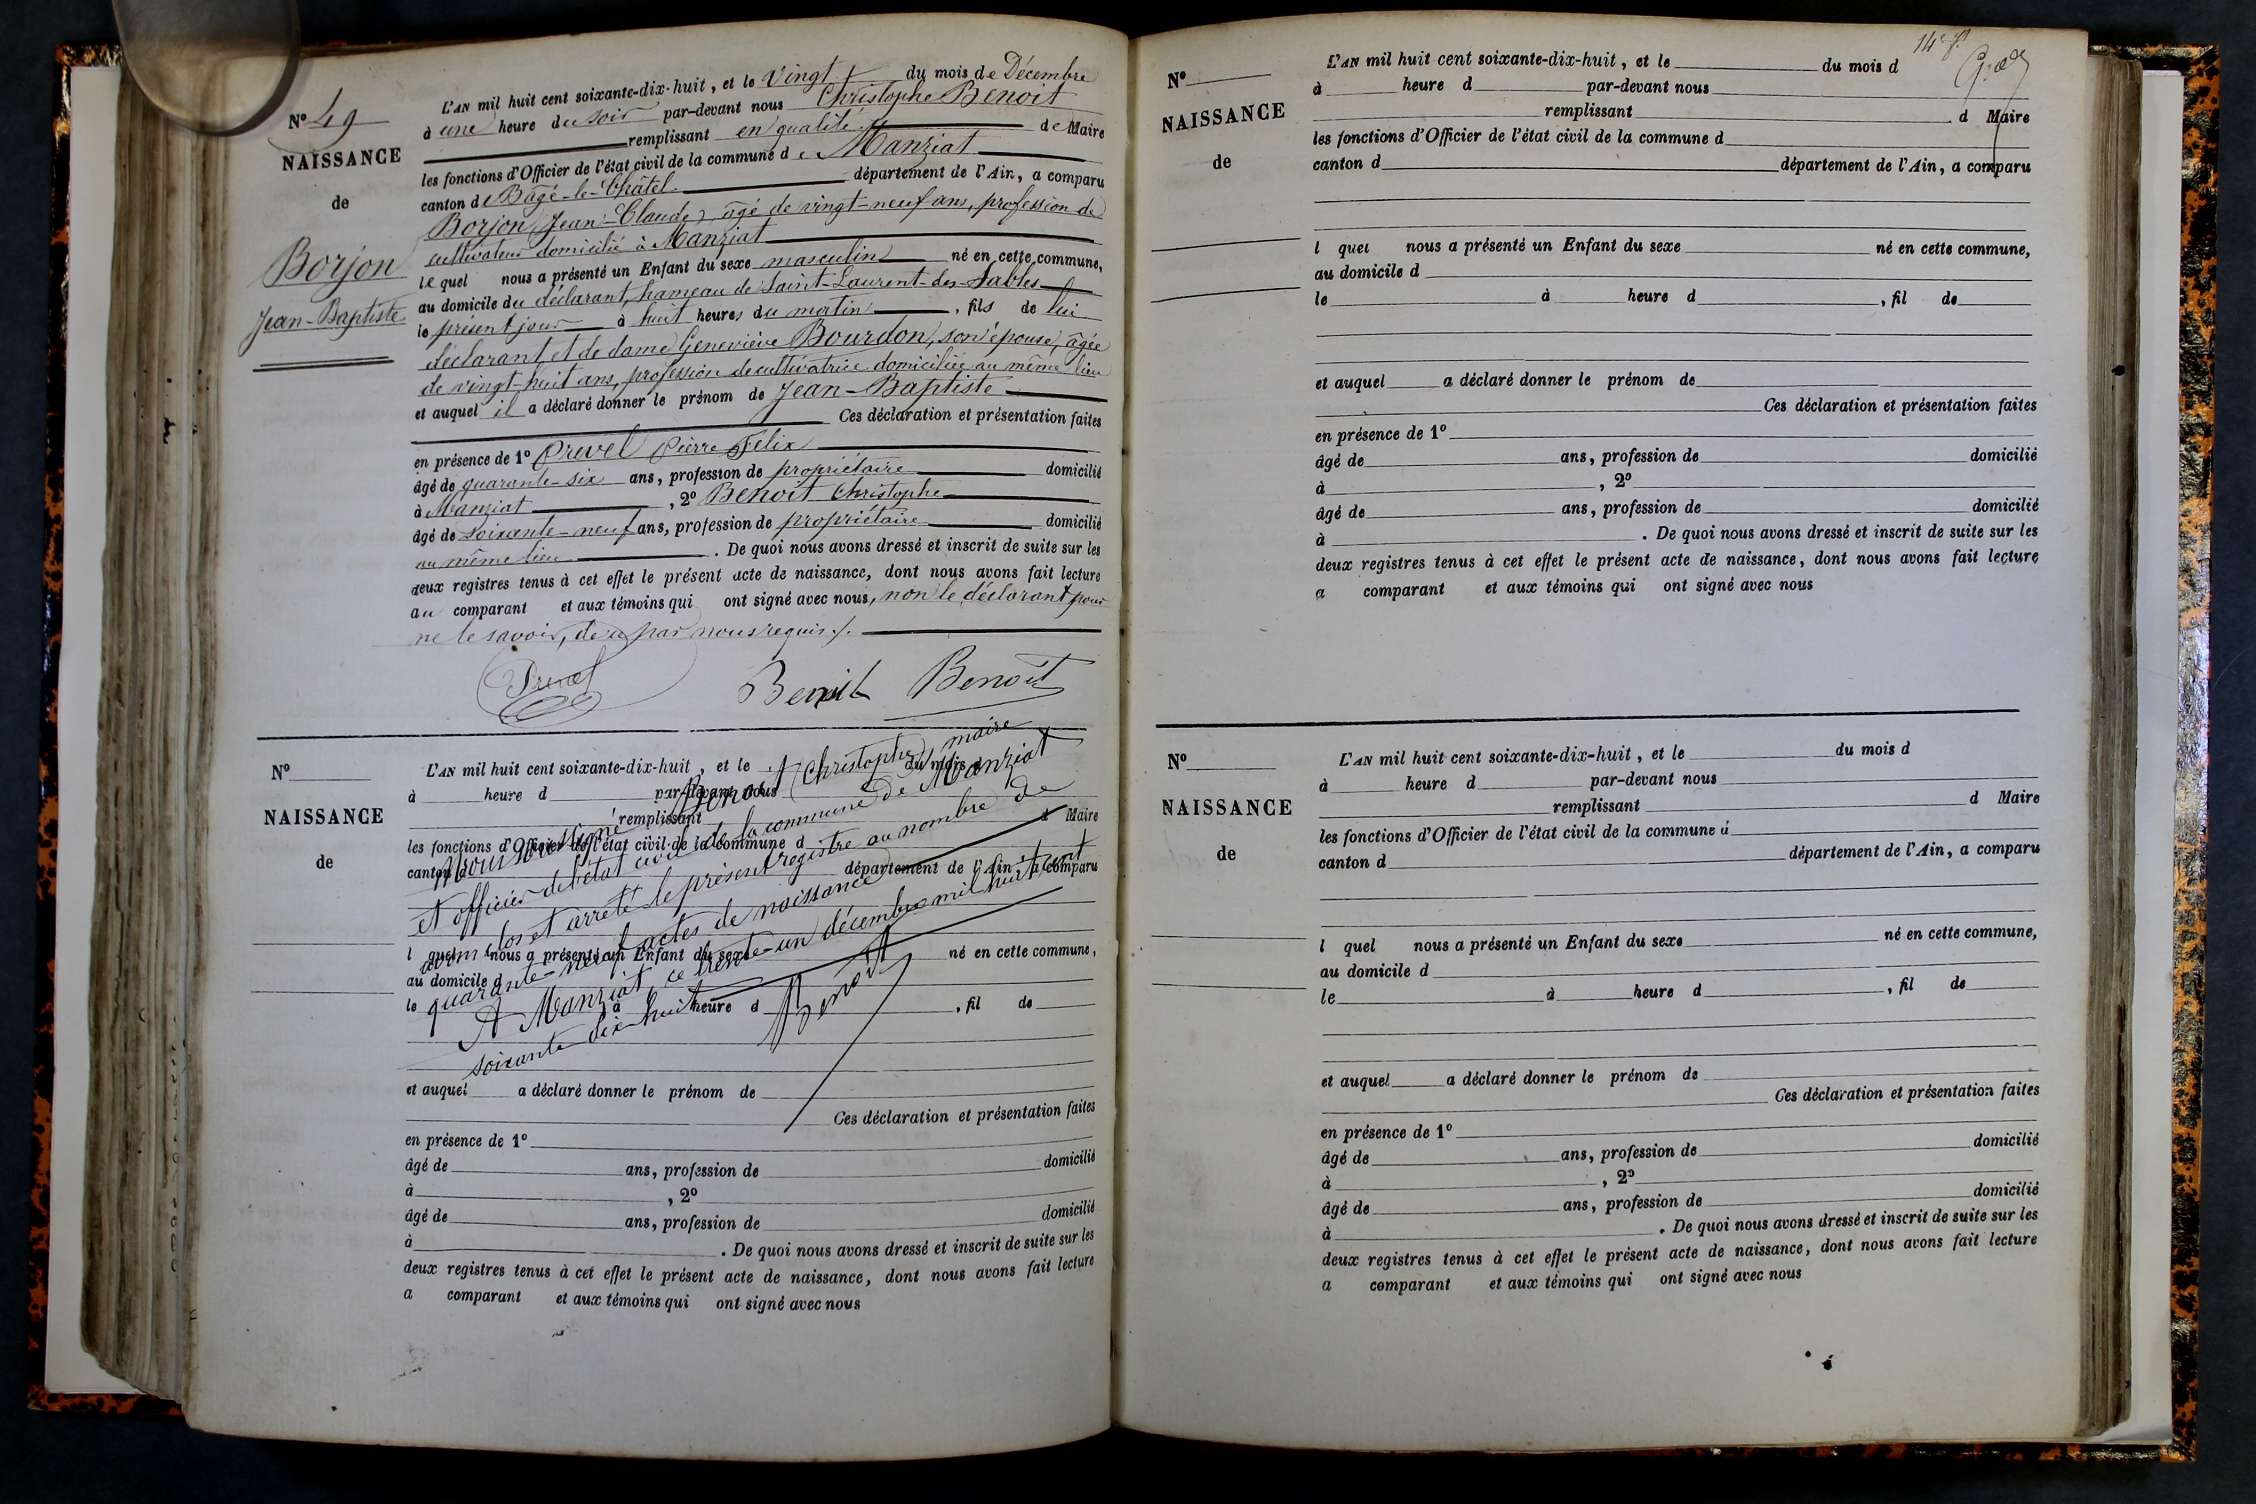 N° 49
NAISSANCE
de
Borjon
Jean-Baptiste
L'AN mil huit cent soixante-dix-huit, et le Vingt du mois de Décembre
à une heure du soir par-devant nous Christophe Benoit
remplissant en qualité de Maire
les fonctions d'Officier de l'état civil de la commune de Manziat
canton de Bâgé-le-Châtel département de l'Ain, a comparu
Borjon Jean-Claude, âgé de vingt-neuf ans, profession de
cultivateur domicilié à Manziat
lequel nous a présenté un Enfant du sexe masculin né en cette commune,
au domicile du déclarant, hameau de Saint-Laurent-des-Sables
le présent jour à huit heures du matin, fils de lui
déclarant et de dame Geneviève Bourdon, son épouse, âgée
de vingt-huit ans, profession de cultivatrice domiciliée au même lieu
et auquel il a déclaré donner le prénom de Jean-Baptiste
Ces déclaration et présentation faites
en présence de 1° Prevel Pierre Felix
âgé de quarante-six ans, profession de propriétaire domicilié
à Manziat, 2° Benoit Christophe
âgé de soixante-neuf ans, profession de propriétaire domicilié
au même lieu. De quoi nous avons dressé et inscrit de suite sur les
deux registres tenus à cet effet le présent acte de naissance, dont nous avons fait lecture
au comparant et aux témoins qui ont signé avec nous, non le déclarant pour
ne le savoir, de ce par nous requis./.
Prevel Benoit Benoit
N°
NAISSANCE
de
L'AN mil huit cent soixante-dix-huit, et le du mois d
à heure d par-devant nous
remplissant d Maire
les fonctions d'Officier de l'état civil de la commune d
canton d département de l'Ain, a comparu
l quel nous a présenté un Enfant du sexe né en cette commune,
au domicile d
le à heure d , fil de
et auquel a déclaré donner le prénom de
Ces déclaration et présentation faites
en présence de 1°
âgé de ans, profession de domicilié
à , 2°
âgé de ans, profession de domicilié
à . De quoi nous avons dressé et inscrit de suite sur les
deux registres tenus à cet effet le présent acte de naissance, dont nous avons fait lecture
a comparant et aux témoins qui ont signé avec nous
Nous soussigné Benoit Christophe maire
et officier de l'état civil de la commune de Manziat
avons clos et arrêté le présent registre au nombre de
quarante-neuf actes de naissance
A Manziat, ce trente-un décembre mil huit cent
soixante dix-huit
Benoit
14e f.
N°
NAISSANCE
de
L'AN mil huit cent soixante-dix-huit, et le du mois d
à heure d par-devant nous
remplissant d Maire
les fonctions d'Officier de l'état civil de la commune d
canton d département de l'Ain, a comparu
l quel nous a présenté un Enfant du sexe né en cette commune,
au domicile d
le à heure d , fil de
et auquel a déclaré donner le prénom de
Ces déclaration et présentation faites
en présence de 1°
âgé de ans, profession de domicilié
à , 2°
âgé de ans, profession de domicilié
à . De quoi nous avons dressé et inscrit de suite sur les
deux registres tenus à cet effet le présent acte de naissance, dont nous avons fait lecture
a comparant et aux témoins qui ont signé avec nous
N°
NAISSANCE
de
L'AN mil huit cent soixante-dix-huit, et le du mois d
à heure d par-devant nous
remplissant d Maire
les fonctions d'Officier de l'état civil de la commune d
canton d département de l'Ain, a comparu
l quel nous a présenté un Enfant du sexe né en cette commune,
au domicile d
le à heure d , fil de
et auquel a déclaré donner le prénom de
Ces déclaration et présentation faites
en présence de 1°
âgé de ans, profession de domicilié
à , 2°
âgé de ans, profession de domicilié
à . De quoi nous avons dressé et inscrit de suite sur les
deux registres tenus à cet effet le présent acte de naissance, dont nous avons fait lecture
a comparant et aux témoins qui ont signé avec nous